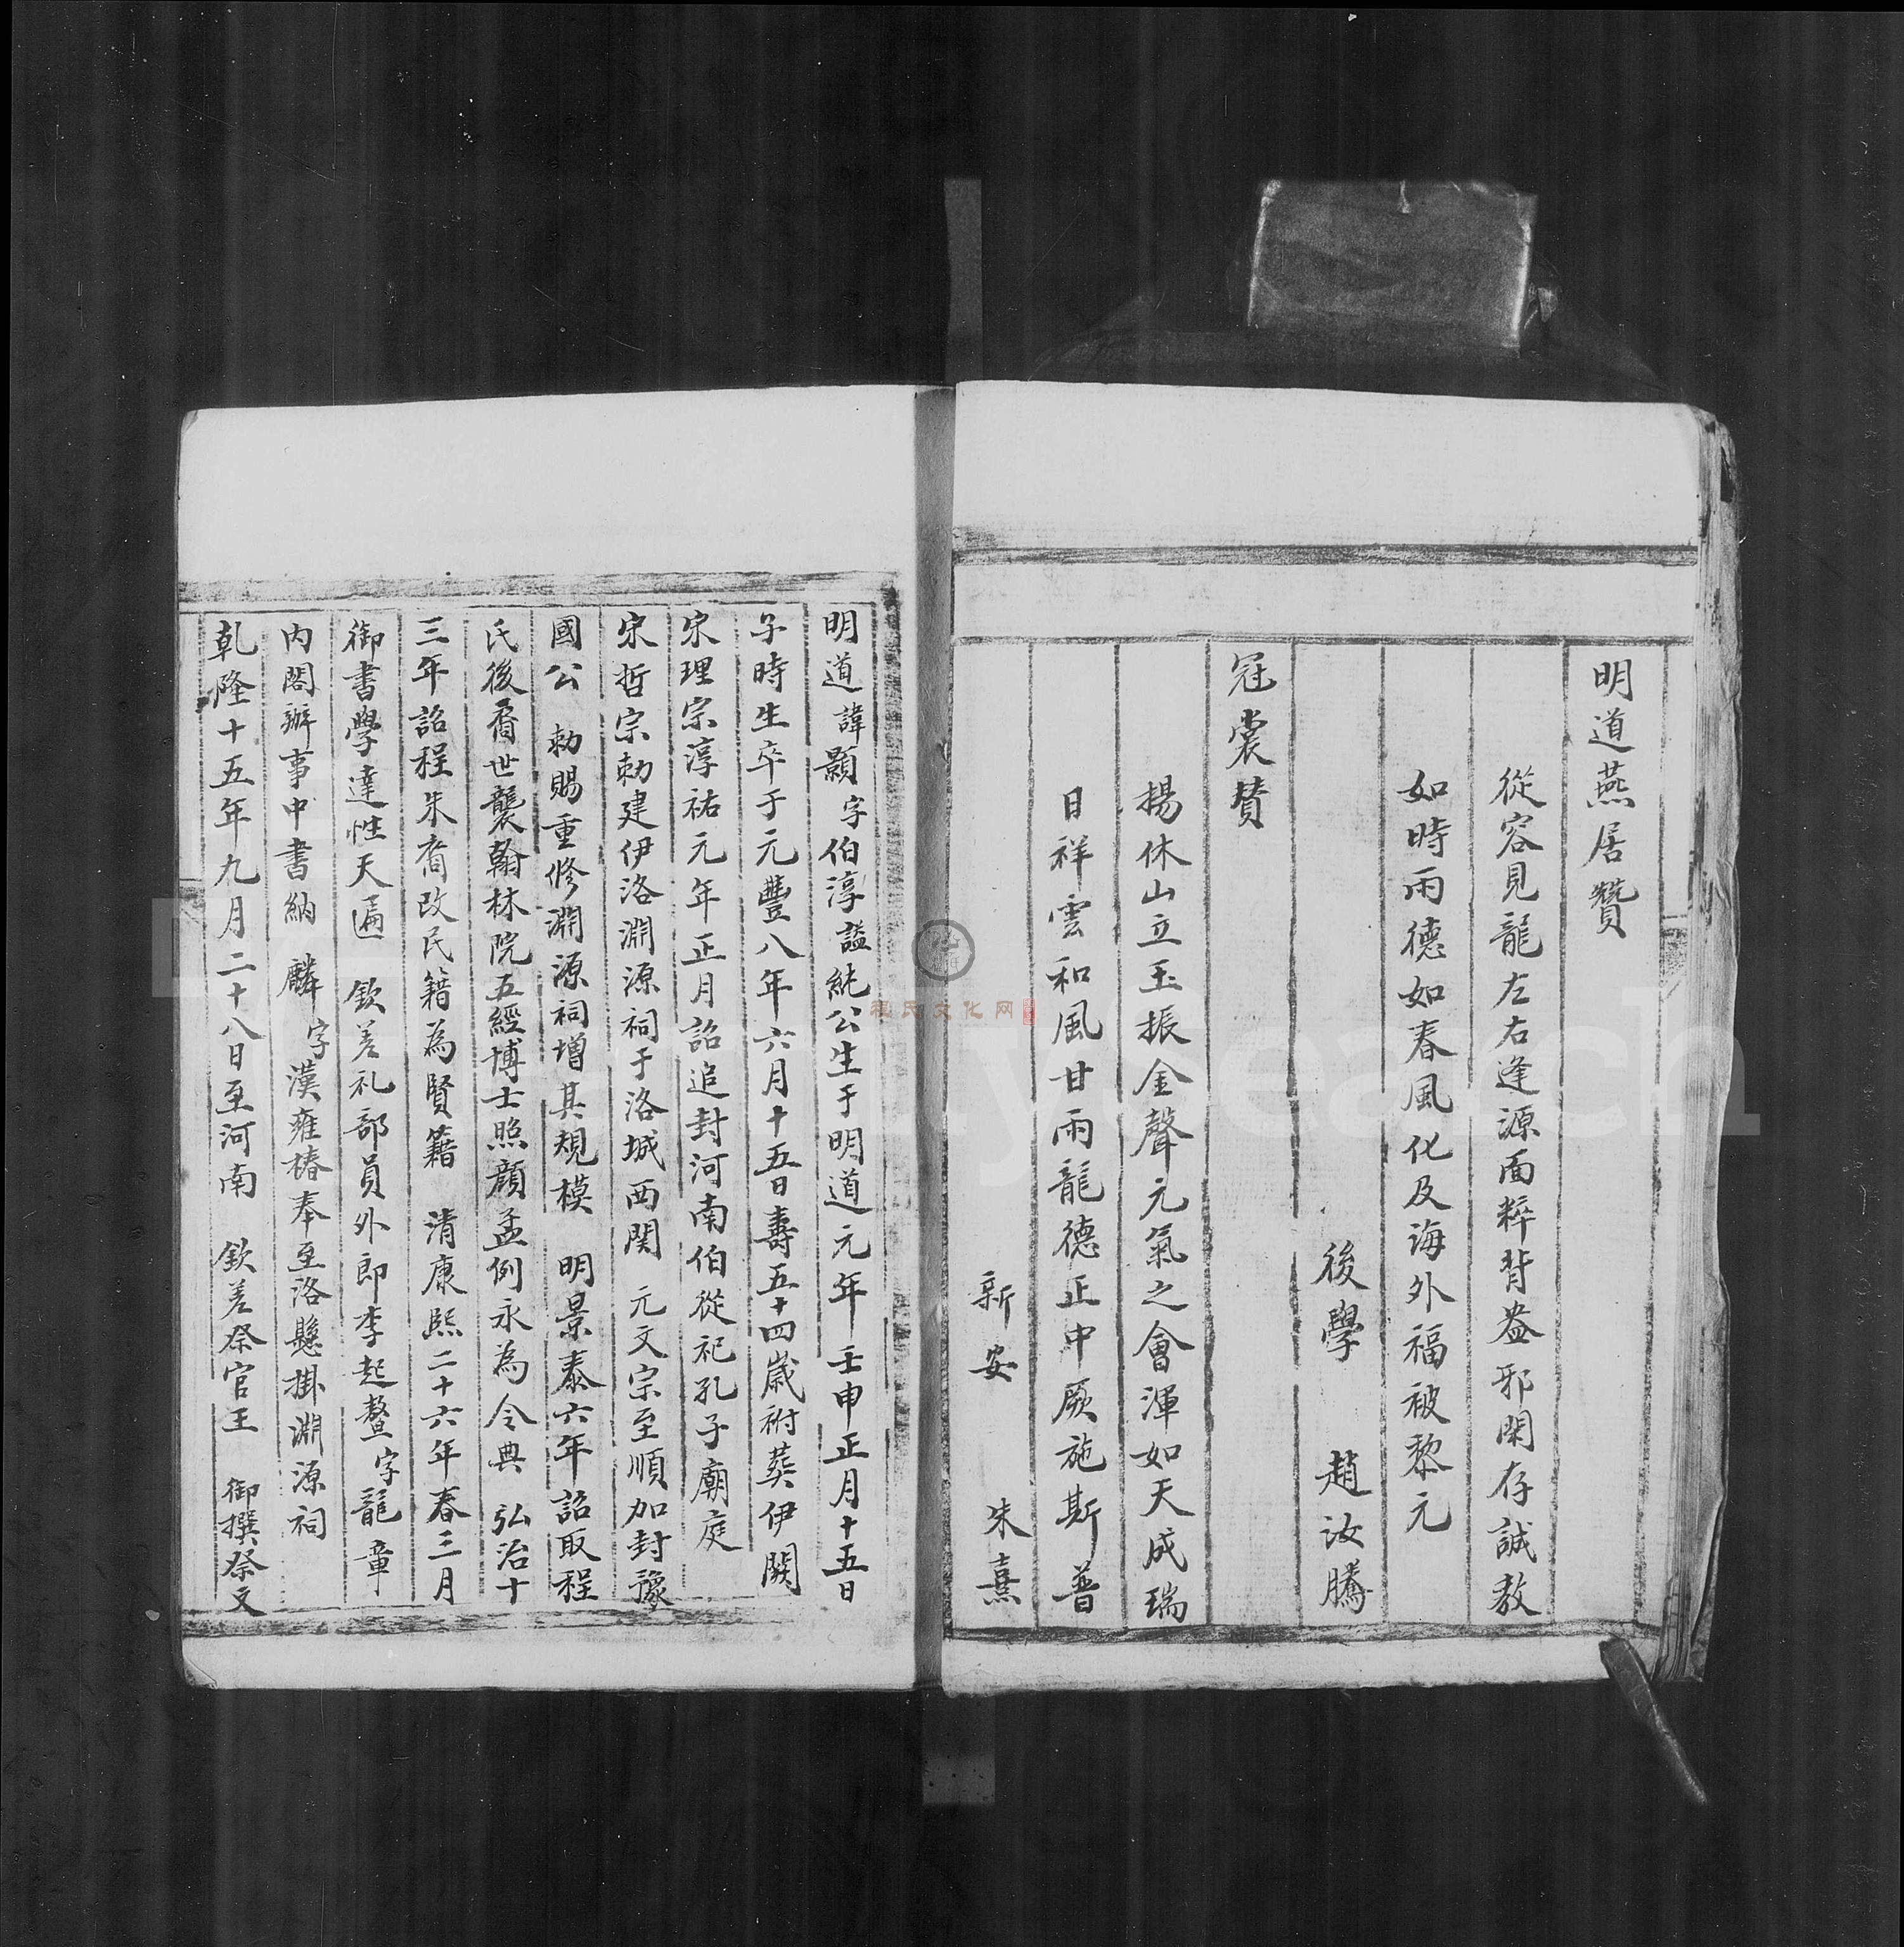 明道燕居贊
從容見龍左右逢源面粹背盎邪閑存誠教
如時雨德如春風化及海外福被黎元
後學 趙汝騰
冠裳贊
揚休山立玉振金聲元氣之會渾如天成瑞
日祥雲和風甘雨龍德正中厥施斯普
新安 朱熹
明道諱顥字伯淳謚純公生于明道元年壬申正月十五日
子時生卒于元豐八年六月十五日壽五十四歲祔葬伊闕
宋理宗淳祐元年正月詔追封河南伯從祀孔子廟庭
宋哲宗勅建伊洛淵源祠于洛城西関 元文宗至順加封豫
國公 勅賜重修淵源祠增其規模 明景泰六年詔取程
氏後裔世襲翰林院五經博士照顏孟例永為令典 弘治十
三年詔程朱裔改民籍為賢籍 清康熙二十六年春三月
御書學達性天匾 欽差礼部員外郎李起鰲字龍章
內閣辦事中書納 麟字漢雍椿奉至洛懸掛淵源祠
乾隆十五年九月二十八日至河南 欽差祭官王 御撰祭文
程氏文化网